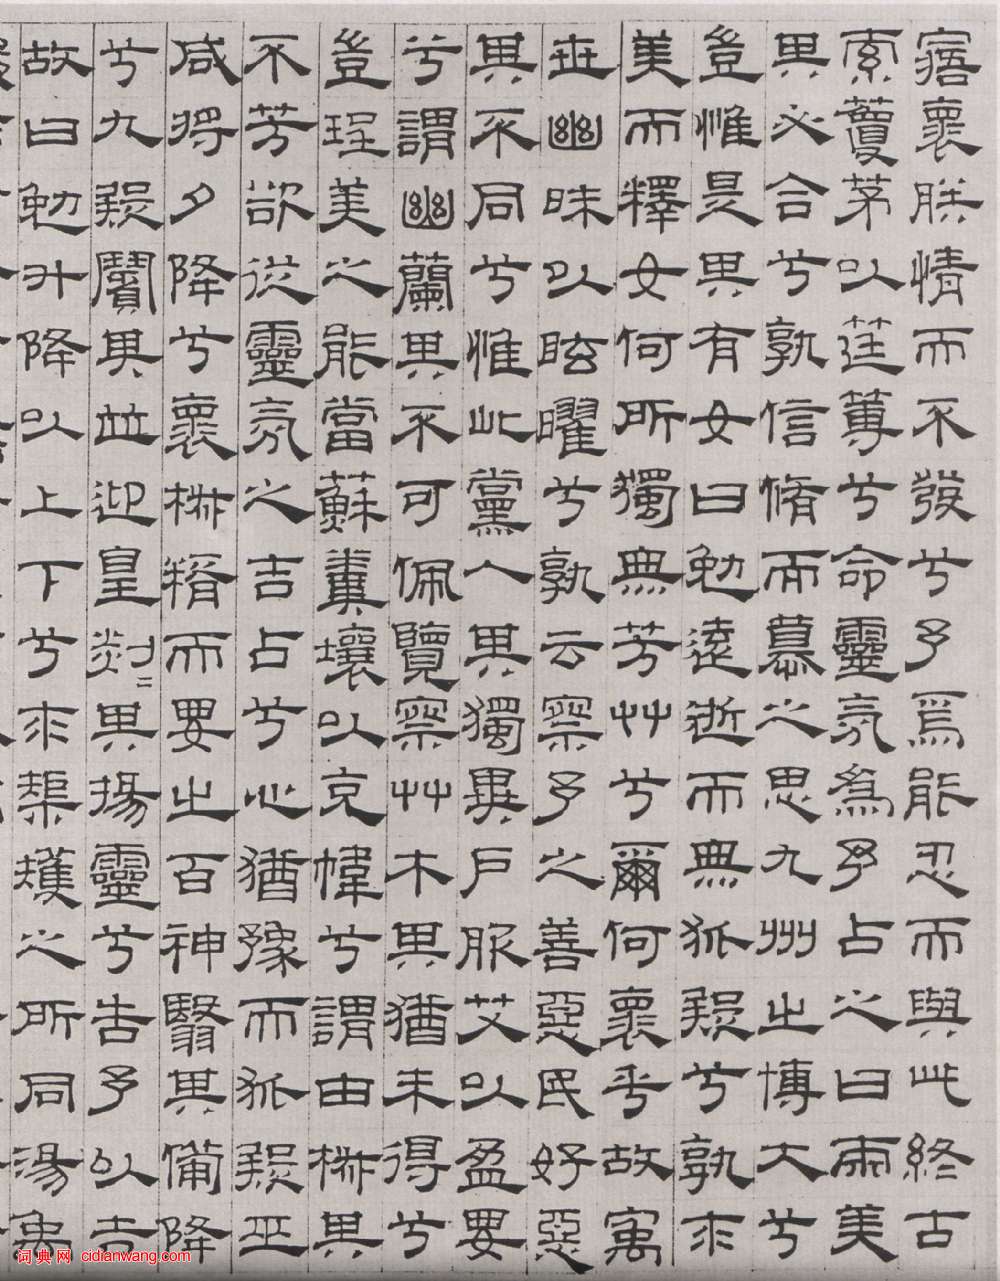 寤褱朕情而不發兮予焉能忍而與此終古
索藑茅以筳蓴兮命靈氛爲予占之曰兩美
其必合兮孰信脩而慕之思九州之博大兮
豈惟是其有女曰勉遠逝而無狐疑兮孰求
美而釋女何所獨無芳艸兮爾何褱乎故㝢
世幽昧以眩曜兮孰云察予之善惡民好惡
其不同兮惟此黨人其獨異戶服艾以盈要
兮謂幽蘭其不可佩覽察艸木其猶未得兮
豈珵美之能當蘇糞壤以充幃兮謂申椒其
不芳欲從靈氛之吉占兮心猶豫而狐疑巫
咸將夕降兮褱椒糈而要之百神翳其備降
兮九疑繽其並迎皇剡〻其揚靈兮告予以吉
故曰勉升降以上下兮求榘矱之所同湯禹
词典网 cidianwang.com